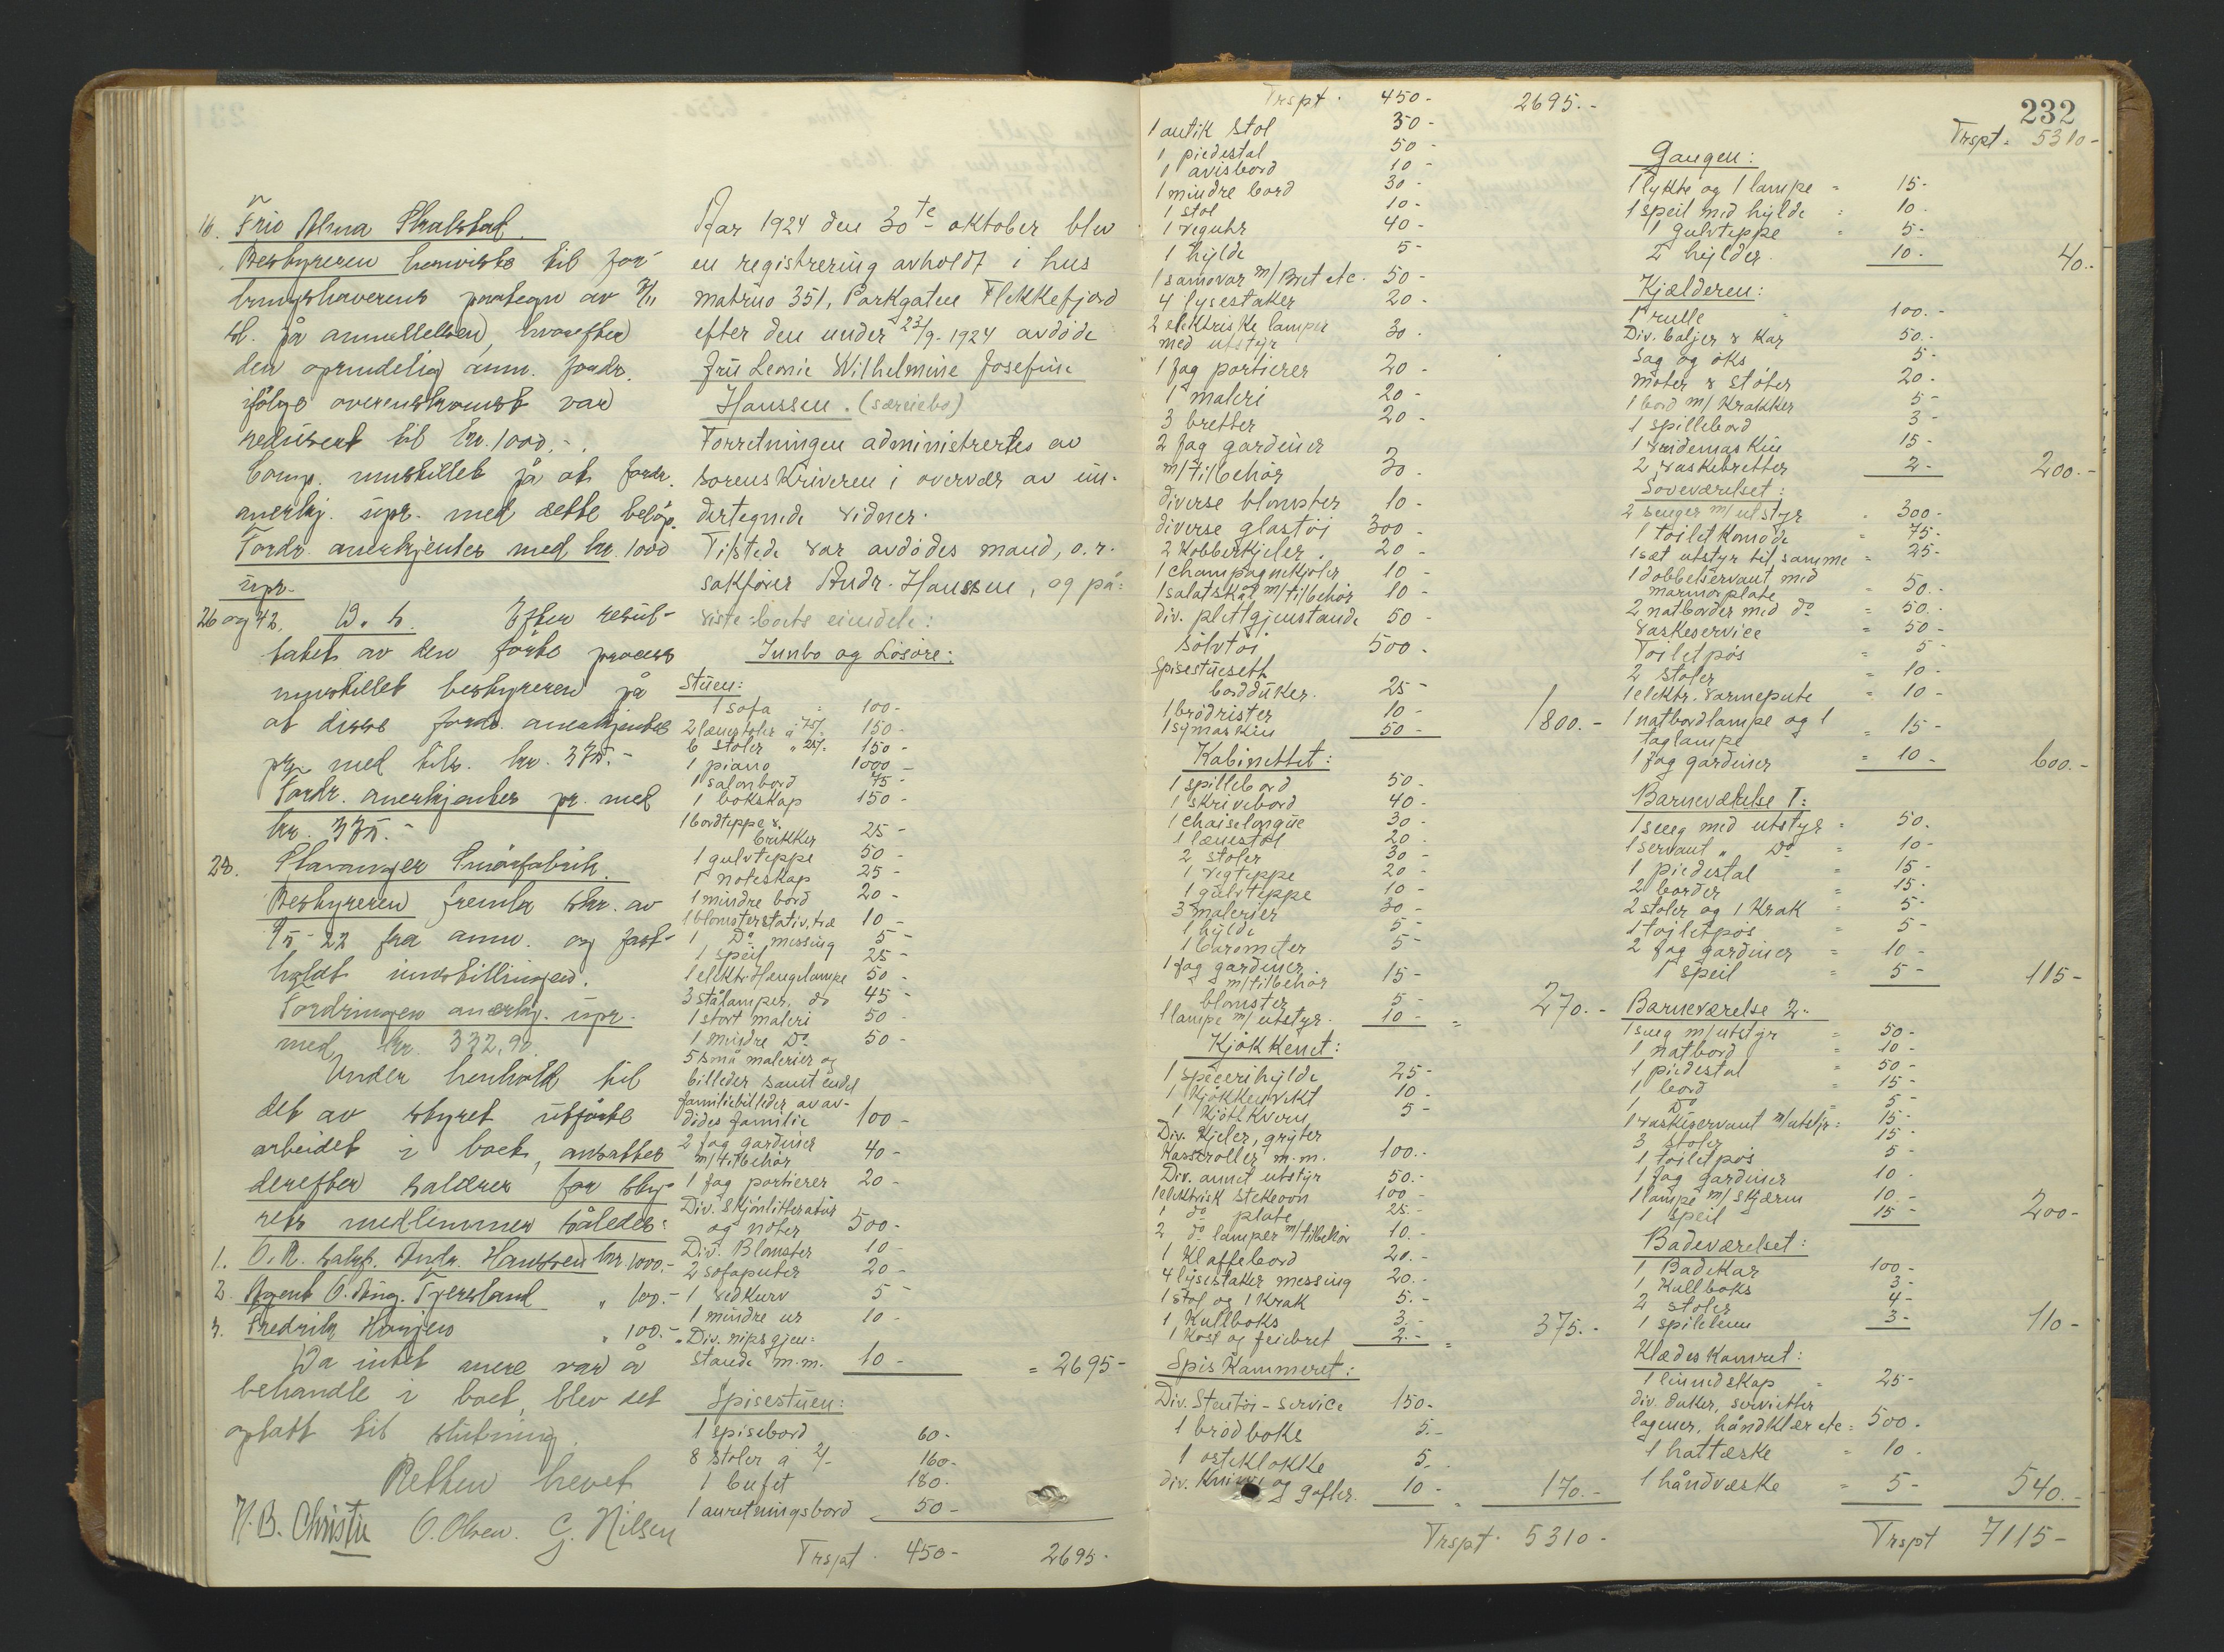 16. Frio Alma Skalstad.
Bestyreren henviste til for-
dringshaverens paategn av
på anmeldelsen, hvorefter
den oprindelig anm. fordr.
ifölge overenskomst var
redusert til kr. 1000.-
Comp. innstillet på at fordr.
anerkj. upr. med dette belöp.
Fordr. anerkjentes med kr. 1000
upr.
26 og 42. D. s. Efter resul-
tatet av den förte process
innstillet bestyreren på
at disse fordr. anerkjentes
pr. med tils. kr. 375.-
Fordr. anerkjentes pr. med
kr. 375.-
28. Stavanger Smörfabrik.
Bestyreren fremla skr. av
22 fra anm. og fast-
holdt innstillingen.
Fordringen anerkj. upr.
med kr. 332.90.
Under henhold til
det av styret utförte
arbeidet i boet, ansattes
derefter salærer for sty-
rets medlemmer således:
1. O.R. sakf. Andr. Hanssen kr. 1000.-
2. Agent O. Ang. Tjersland " 100.-
3. Fredrik " 100.-
Da intet mere var å
behandle i boet, blev det
optatt til slutning.
Retten hevet
N.B. Christie O. Olsen. G. Nilsen
Aar 1924 den 30te oktober blev
en registrering avholdt i hus
matrno 351, Parkgaten Flekkefjord
efter den under 23/9. 1924 avdöde
Fru Leonie Wilhelmine Josefine
Hanssen. (særeiebo)
Forretningen administrertes av
sorenskriveren i overvær av un-
dertegnede vidner.
Tilstede var avdödes mand, o.r.
sakförer Andr. Hanssen, og på-
viste boets eiendele:
Innbo og Lösöre:
Stuen:
1 sofa = 100-
2 lænestoler à 75/- 150-
6 stoler " 25/- 150-
1 piano 1000-
1 salonbord 75-
1 bokskap 150-
1 bordteppe &
brikker 25-
1 gulvteppe 50-
1 noteskap 25-
1 mindre bord 20-
1 blomsterstativ, træ 10-
1 Do messing 5-
1 speil 25-
1 elektr. Hængelampe 50-
3 stålamper, do 45-
1 stort maleri 50-
1 mindre Do 50-
5 små malerier og
billeder samt endel
familiebilleder av av-
dødes familie 100-
2 fag gardiner
m/tilbehör 40-
1 fag portierer 20-
Div. skjönlitteratur
og noter 500-
Div. Blomster 10-
2 sofaputer 20-
1 vedkurv 5-
1 mindre ur 10-
Div. nipsgjen-
stande m.m. 10- = 2695-
Spisestuen:
1 spisebord 60-
8 stoler à 2/- 160-
1 bufet 180-
1 anretningsbord 50-
Trspt. 450- 2695-
232
Trspt. 450- 2695.-
1 antik stol 30-
1 piedestal 50-
1 avisbord 10-
1 mindre bord 30-
1 stol 10-
1 veguhr 40-
1 hylde 5-
1 samovar m/Bret etc. 50-
4 lysestaker 20-
2 elektriske lamper
med utstyr 30-
1 fag portierer 20-
1 maleri 20-
3 bretter 20-
2 fag gardiner
m/tilbehör 30-
diverse blomster 10-
diverse glastöi 300-
2 Kobberkjeler 20-
1 champagnekjöler 10-
1 salatskål m/tilbehör 10-
div. plettgjenstande 50-
sölvtöi 500-
Spisestuesett
bordduker. 25-
1 brödrister 10-
1 symaskin 50- 1800.-
Kabinettet:
1 spillebord 50-
1 skrivebord 40-
1 chaiselongue 30-
1 lænestol 20-
2 stoler 30-
1 vegteppe 20-
1 gulvteppe 10-
3 malerier 30-
1 hylde 5-
1 barometer 5-
1 fag gardiner
m/tilbehör 15-
blomster 5-
1 lampe m/utstyr. 10- = 270.-
Kjökkenet:
1 specerihylde 25-
1 Kjökkenvekt 10-
1 Kjöttkvern 5-
Div. Kjeler, gryter
Kasseroller m.m. 100.-
Div. annet utstyr 50.-
1 elektrisk stekeovn 100-
1 do plate 25.-
2 do lamper m/tilbehör 10.-
1 Klaffebord 20.-
4 lysestaker messing 20.-
1 stol og 1 krak 5.-
1 Kullboks 3.-
1 Kost og feiebret 2.- = 375.-
Spiskammeret:
Div. Stentöi-service 150-
1 brödboks 5.-
1 osteklokke 5.-
div. Kniver og gafler. 10- = 170.-
Trspt. 5310-
Trspt. 5310-
Gangen:
1 lykte og 1 lampe = 15-
1 speil med hylde = 10-
1 gulvteppe = 5-
2 hylder. 10- 40.-
Kjælderen:
1 rulle " 100.-
Div. baljer & Kar 50.-
Sag og öks 5-
20-
1 bord m/Krakker 5-
1 spillebord 3-
1 vridemaskin 15-
2 vaskebretter 2- 200.-
Soveværelset:
2 senger m/utstyr = 300-
1 toiletkomode = 75-
1 sæt utstyr til samme = 25-
1 dobbeltservant med
marmorplate = 50.-
2 natborder med do = 50.-
vaskeservice = 50-
Toiletpös = 5-
2 stoler = 10-
1 elektr. varmepute = 10-
1 natbordlampe og 1
taglampe = 15-
1 fag gardiner = 10- 600.-
Barneværelse 1:
1 seng med utstyr = 50.
1 servant " Do = 10-
1 piedestal = 15-
2 border = 15-
2 stoler og 1 Krak = 5-
1 toiletpös = 5-
2 fag gardiner = 10-
1 speil = 5- 115-
Barneværelse 2.
1 seng m/utstyr = 50-
1 natbord = 10-
1 piedestal = 50-
1 bord = 15-
1 Do = 5-
1 vaskeservant m/utstyr = 15-
3 stoler 15-
1 toiletpös 5-
1 fag gardiner 10-
1 lampe m/skjærm 10.-
1 speil 15- 200-
Badeværelset:
1 Badekar 100-
1 Kullboks 3-
2 stoler 4-
1 3- 110-
Klædeskamret:
1 linnedskap = 25-
div. duker, servietter
lagener, håndklær etc = 500-
1 hatteske = 10-
1 håndveske = 5- 540.-
Trspt 7115-